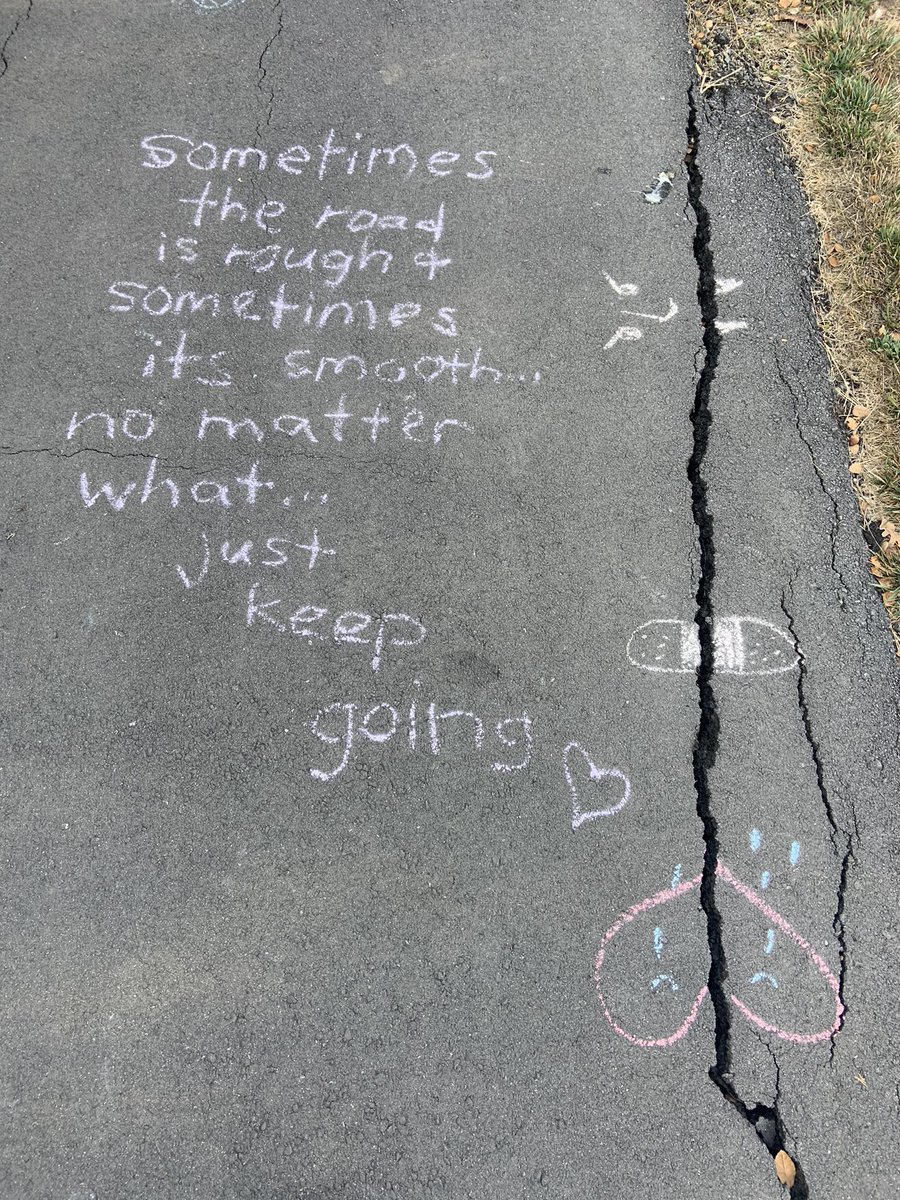 sometimes
the road
is rough &
sometimes
its smooth...
no matter
what...
just
keep
going